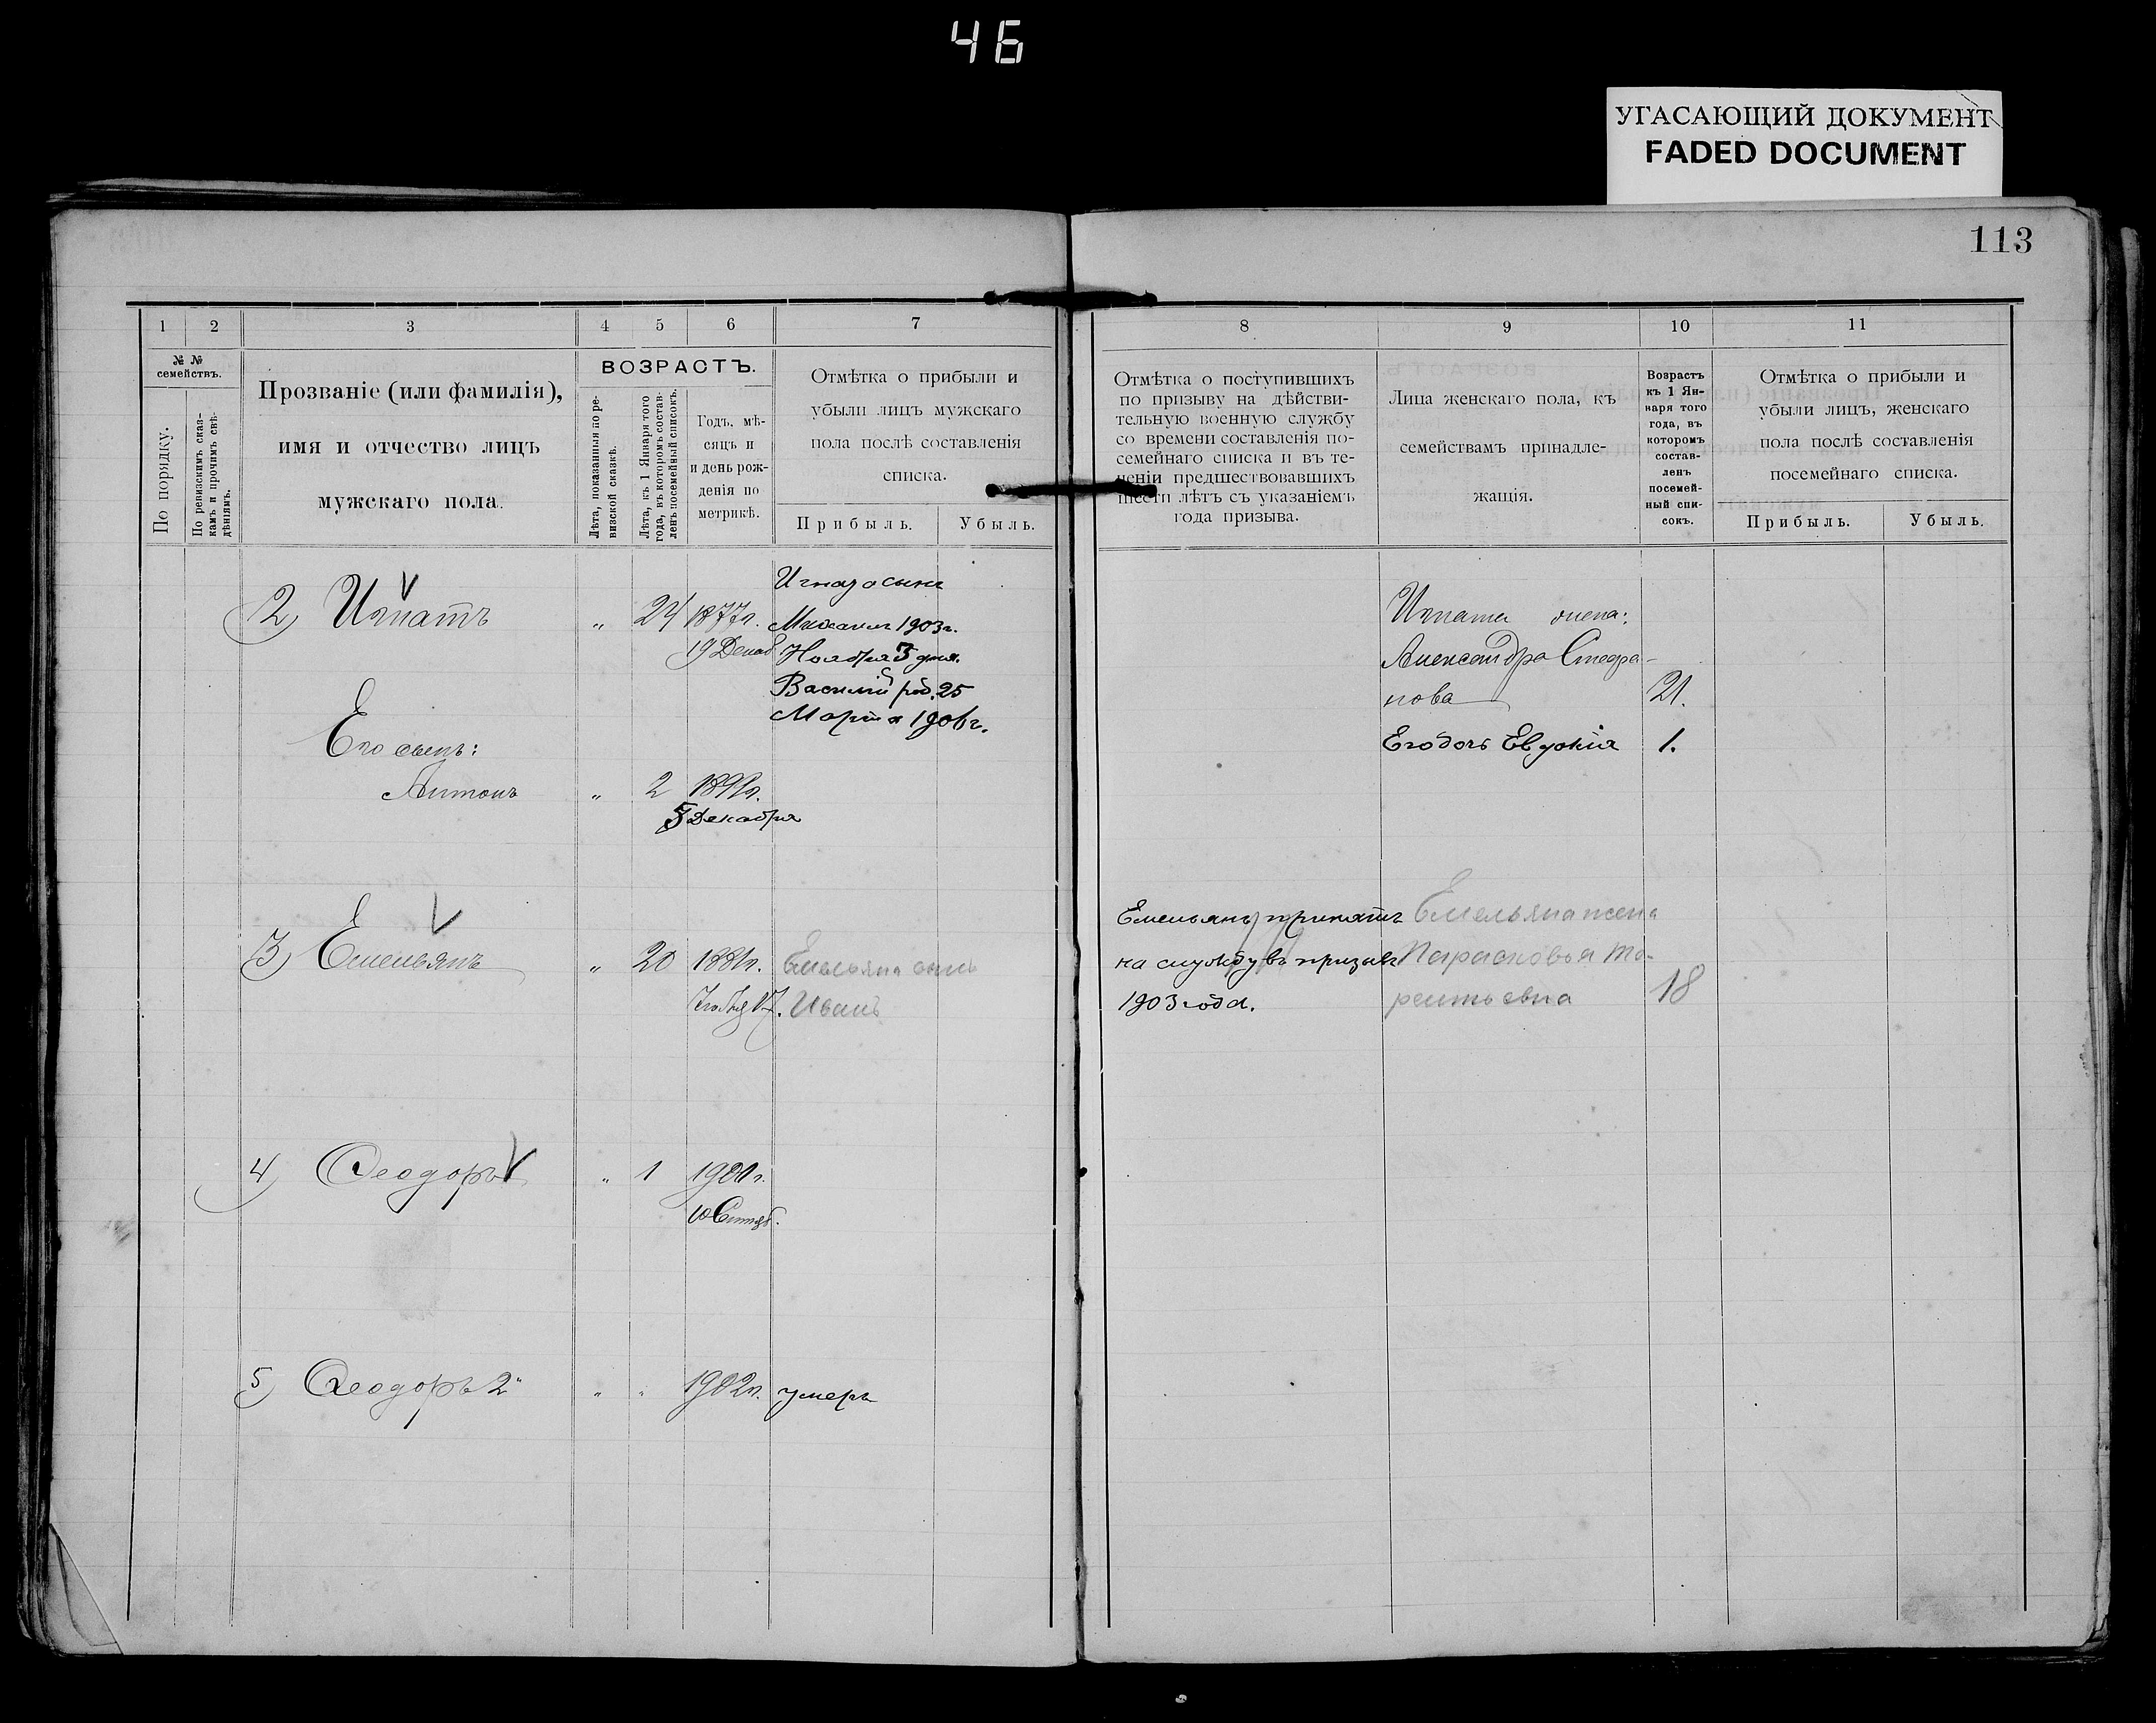 46
УГАСАЮЩИЙ ДОКУМЕНТ
FADED DOCUMENT
113
1 2 3 4 5 6 7
№ № семействъ.
По порядку.
По ревизскимъ сказ-
камъ и прочимъ свѣ-
дѣніямъ.
Прозваніе (или фамилія),
имя и отчество лицъ
мужскаго пола.
ВОЗРАСТЪ.
Лѣта, показанныя по ре-
визской сказкѣ.
Лѣта, къ 1 Января того
года, въ которомъ состав-
ленъ посемейный списокъ.
Годъ, мѣ-
сяцъ и
и день рож-
денія по
метрикѣ.
Отмѣтка о прибыли и
убыли лицъ мужскаго
пола послѣ составленія
списка.
Прибыль. Убыль.
8 9 10 11
Отмѣтка о поступившихъ
по призыву на дѣйстви-
тельную военную службу
со времени составленія по-
семейнаго списка и въ те-
ченіи предшествовавшихъ
шести лѣтъ съ указаніемъ
года призыва.
Лица женскаго пола, къ
семействамъ принадле-
жащія.
Возрастъ
къ 1 Ян-
варя того
года, въ
которомъ
состав-
ленъ
посемей-
ный спи-
сокъ.
Отмѣтка о прибыли и
убыли лицъ, женскаго
пола послѣ составленія
посемейнаго списка.
Прибыль. Убыль.
2) Игнатъ „ 24 1877г.
19 Декаб
Игната сынъ
Михаилъ 1903г.
Ноября 3 дня.
Василій род. 25
Марта 1906г.
Его сынъ:
Антонъ „ 2 1899г.
5 Декабря
3) Емельянъ „ 20 1881г.
Ноября 17.
Емельяна сынъ
Иванъ
4) Ѳеодоръ „ 1 1900г.
10 Сентяб.
5) Ѳеодоръ 2й „ „ 1902г. умеръ
Игната жена:
Александра Стефа-
нова 21.
Его дочь Евдокія 1.
Емельянъ принятъ
на службу въ призывъ
1903 года.
Емельяна жена
Парасковья
18